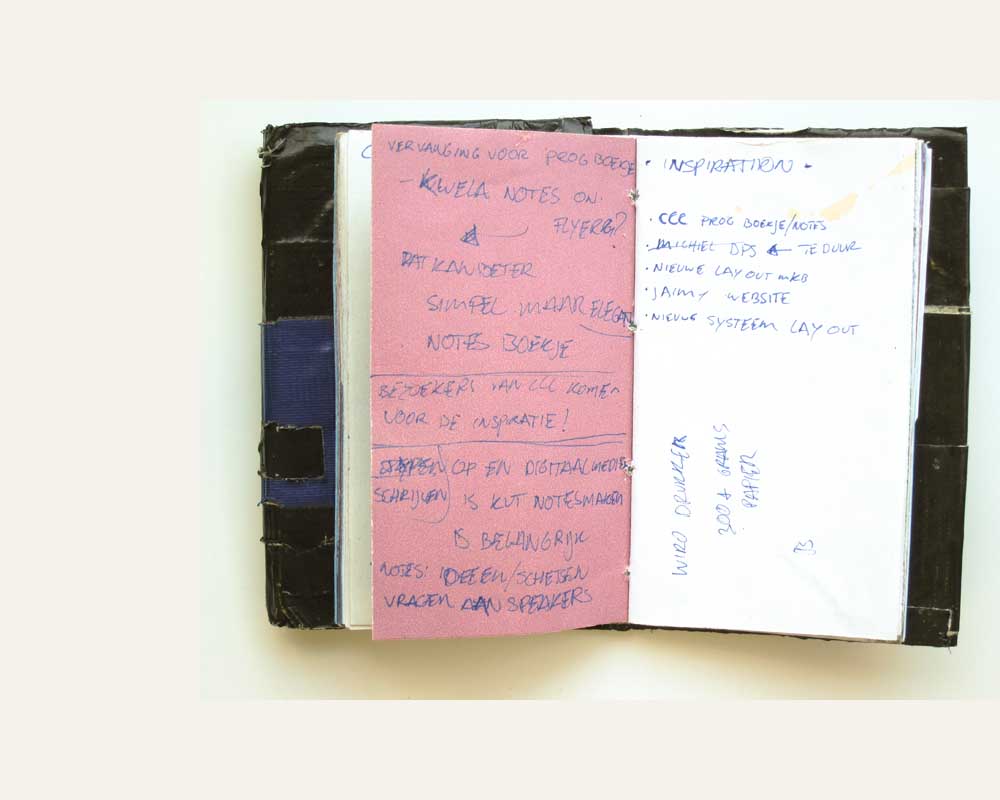 VERVANGING VOOR PROG BOEKJE
- KWELA NOTES ON.
FLYERS?
DAT KAN BETER
SIMPEL MAAR ELEGANT
NOTES BOEKJE
BEZOEKERS VAN CCC KOMEN
VOOR DE INSPIRATIE!
OP EN DIGITAAL MEDIE
SCHRIJVEN IS KUT NOTES MAKEN
IS BELANGRIJK
NOTES: IDEEEN/SCHETSEN
VRAGEN AAN SPEAKERS
• INSPIRATION •
• CCC PROG BOEKJE/NOTES
• MICHIEL DPS ← TE DUUR
• NIEUWE LAY OUT MKB
• JAIMY WEBSITE
• NIEUWE SYSTEEM LAY OUT
WIRO DRUKKER
300 + GRAMS
PAPIER